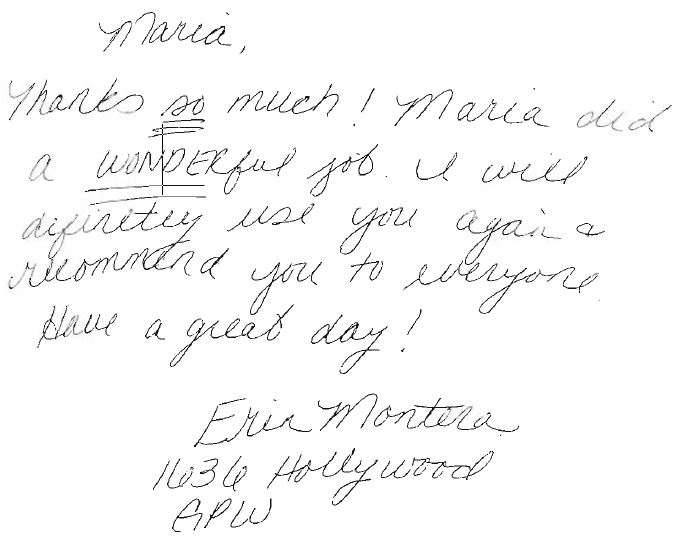 Maria,
Thanks so much! Maria did
a WONDERful job. I will
difinetly use you again &
recommend you to everyone.
Have a great day!
Erin Montera
1636 Hollywood
GPW